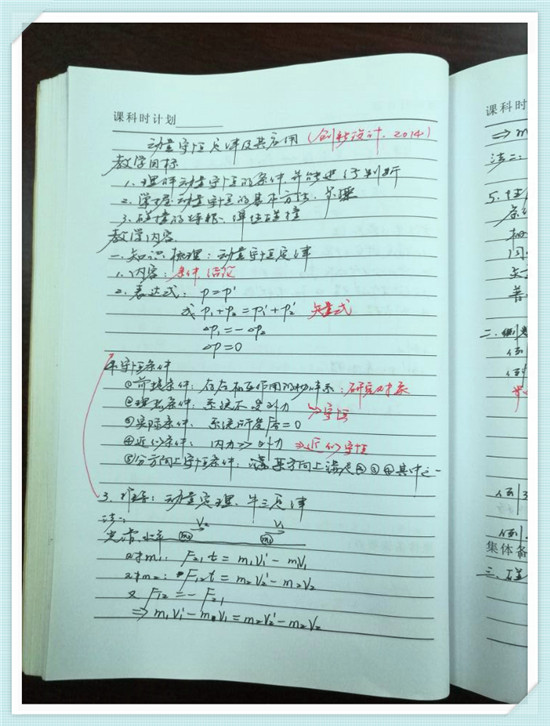 课科时计划
动量守恒定律及其应用 (创新设计, 2014)
教学目标
1. 理解动量守恒的条件并能进行判断
2. 掌握动量守恒的基本方法、步骤
3. 碰撞的特点、弹性碰撞
教学内容
一. 知识梳理: 动量守恒定律
1. 内容: 条件, 结论
2. 表达式: p=p'
或 p₁+p₂=p₁'+p₂' 矢量式
Δp₁=-Δp₂
Δp=0
守恒条件
①前提条件: 存在相互作用的物体系: 研究对象
②理想条件: 系统不受外力 →守恒
③实际条件: 系统所受F合=0
④近似条件: 内力>>外力 ⇒近似守恒
⑤分方向上守恒条件: 某方向上满足②③④其中之一
3. 推导: 动量定理、牛三定律
法一:
光滑水平 m₁ V₂ m₂ V₁
对m₁: F₂₁t=m₁V₁'-mV₁
对m₂: F₁₂t=m₂V₂'-m₂V₂
又 F₁₂=-F₂₁
⇒ m₁V₁'-m₁V₁=m₂V₂'-m₂V₂
⇒ m
法二:
5.
条
二.
例
例
例3
例
集体备
三. 碰